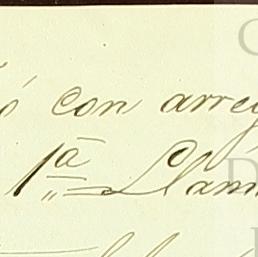 ó con arreg
1ª Llam